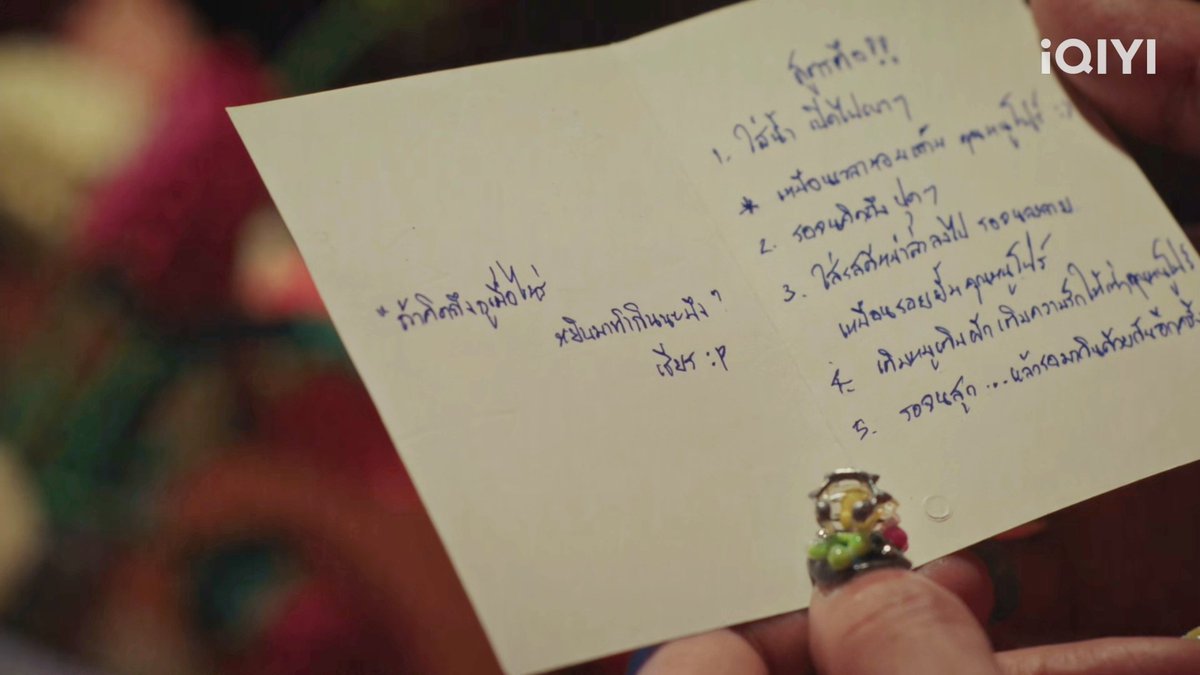 iQIYI
"ถ้าคิดถึงกูเมื่อไหร่
หยิบมาทำกินนะมึง"
เธียร :P
สูตรคือ!!
1. ใส่น้ำ เปิดไฟเบาๆ
* เหมือนเวลาหอมแก้ม คุณหนูโปร์ :)
2. รอจนคิดถึง ปุดๆ
3. ใส่รสดีหน้าล่ำลงไป รอจนละลาย
เหมือนรอยยิ้มคุณหนูโปร์
4. เติมหมูเติมผัก เติมความรักให้เท่าคุณหนูโปร์
5. รอจนสุก ...แล้วรอมากินด้วยกันอีกครั้ง